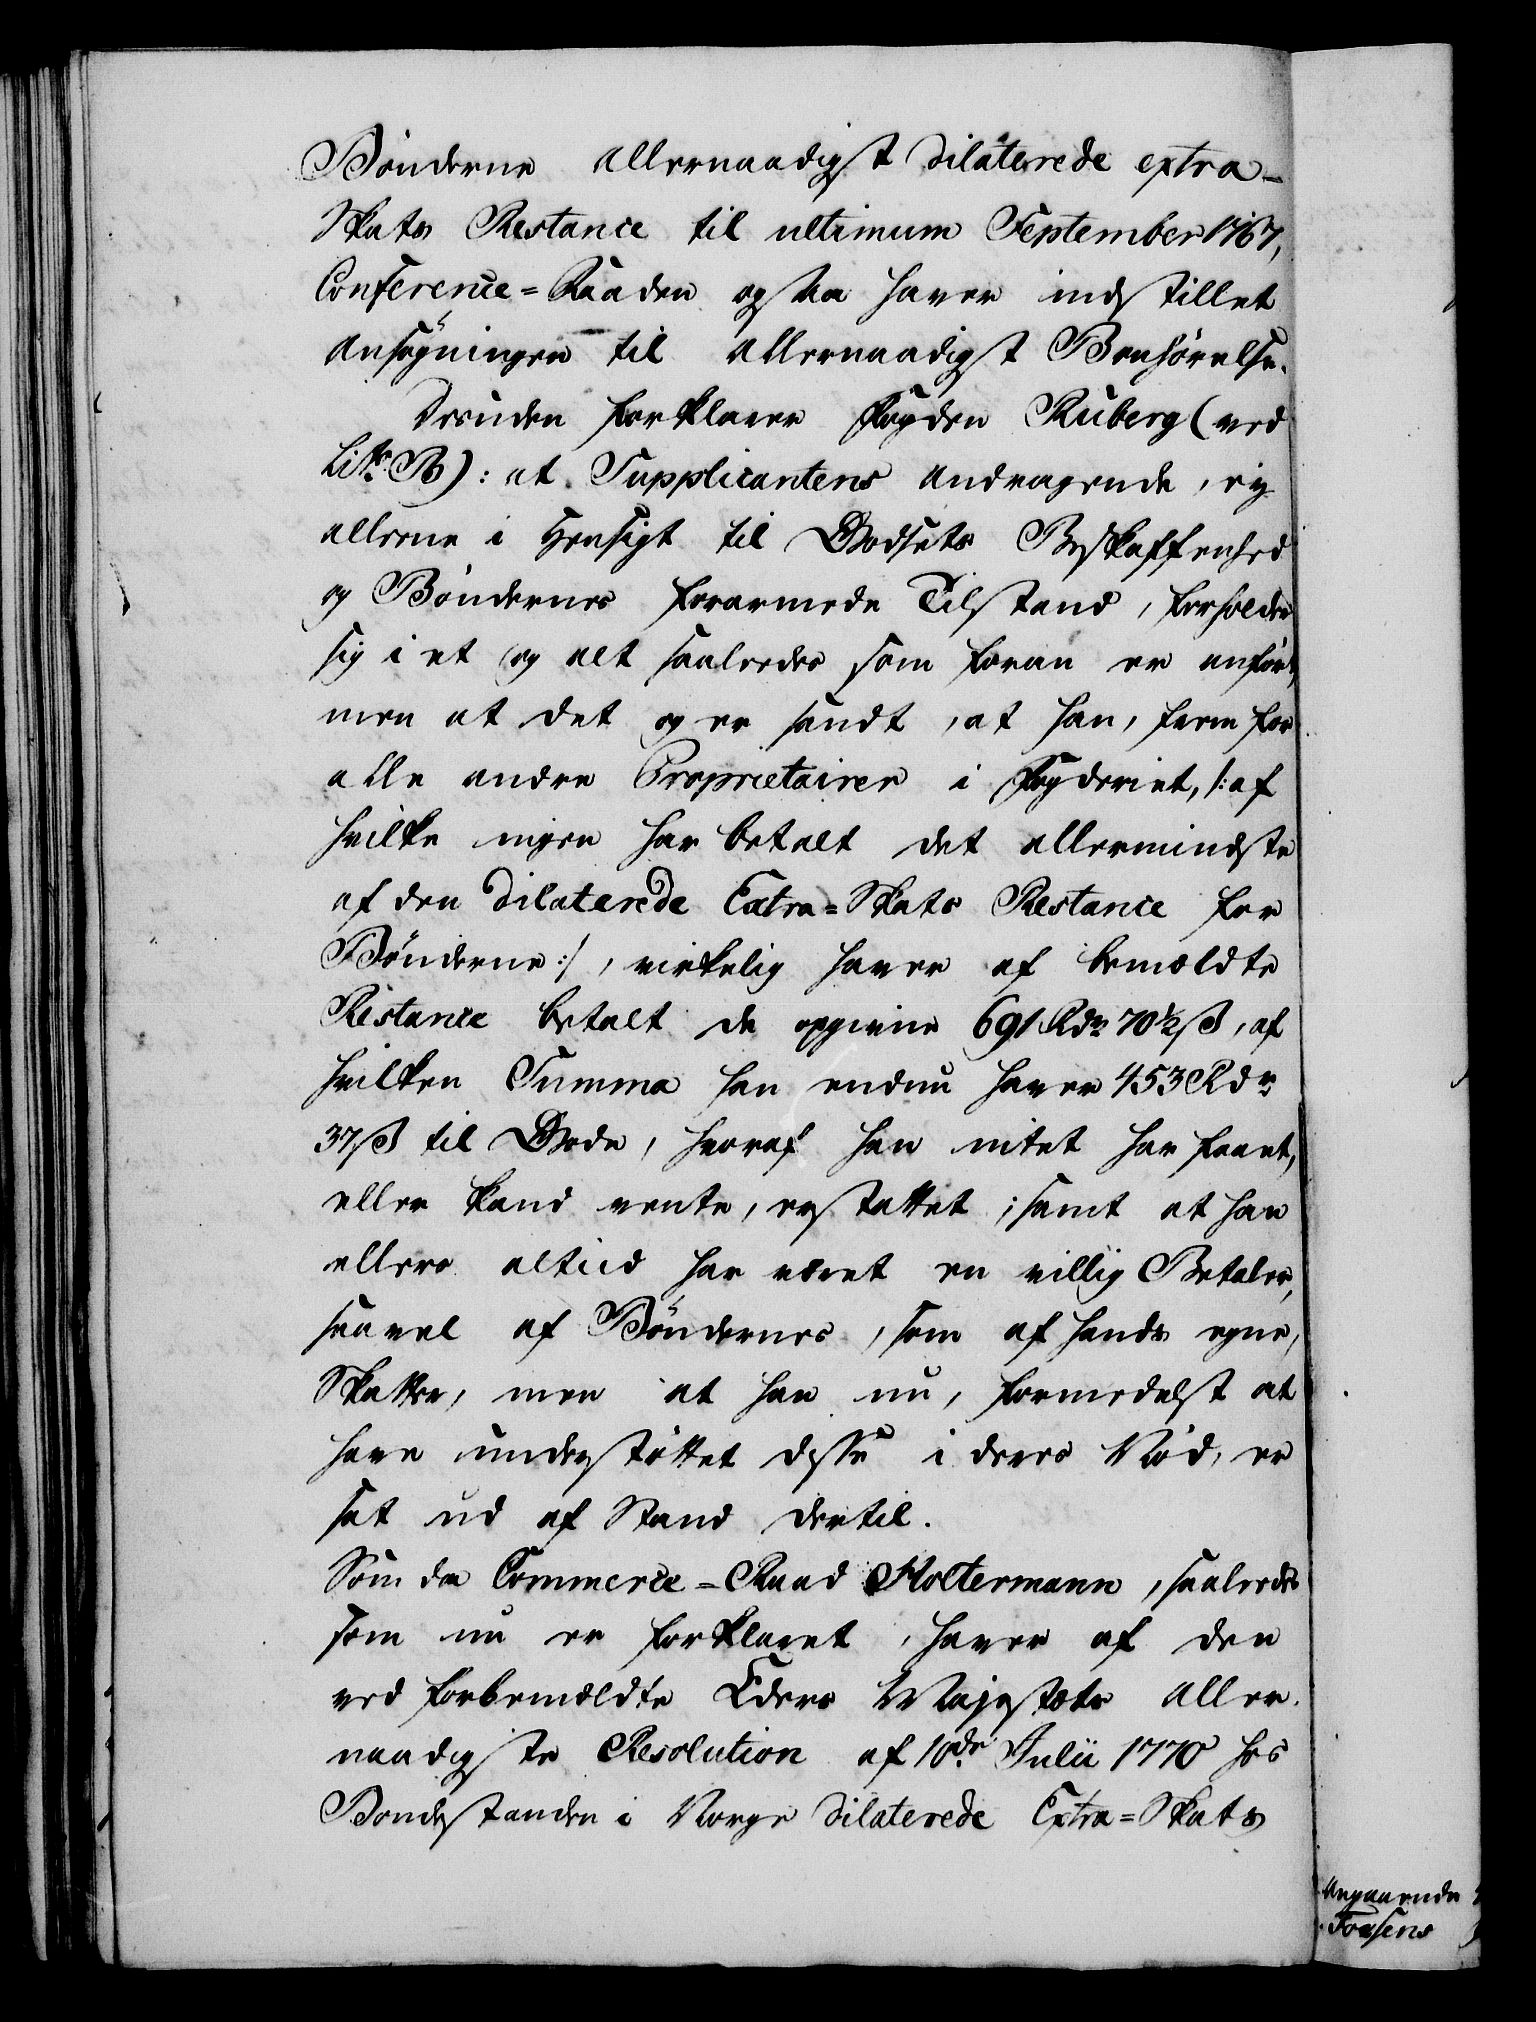 Bönderne allernaadigst dilaterede extra-
Skats Restance til ultimum September 1767,
Conference=Raaden ogsaa haver indstillet
Ansøgningen til allernaadigst Bønhørelse.
Desuden forklarer Fogden Ruberg (ved
Litr. B): at Supplicantens Andragende, ey
alleene i Hensigt til Godsets Beskaffenhed
og Böndernes forarmede Tilstand, forholder
sig i et og alt saaledes som foran er anført,
men at det og er sandt, at han, frem for
alle andre Proprietairer i Fogderiet, /: af
hvilke ingen har betalt det allermindste
af den dilaterede Extra=Skats Restance for
Bönderne :/, virkelig haver af bemeldte
Restance betalt de opgivne 691 Rdr 70½ ß, af
hvilken Summa han endnu haver 453 Rdr
37 ß til Gode, hvoraf han intet har faaet,
eller kand vente, erstattet; samt at han
ellers altiid har været en villig Betaler,
saavel af Böndernes, som af hands egne,
Skatter, men at han nu, formedelst at
have understöttet disse i deres Nød, er
sat ud af Stand dertil.
Som da Commerce=Raad Holtermann, saaledes
som nu er forklaret, haver af den
ved forbemeldte Eders Majestæts aller-
naadigste Resolution af 10de Julii 1770 hos
Bondestanden i Norge dilaterede Extra=Skats
Angaaende